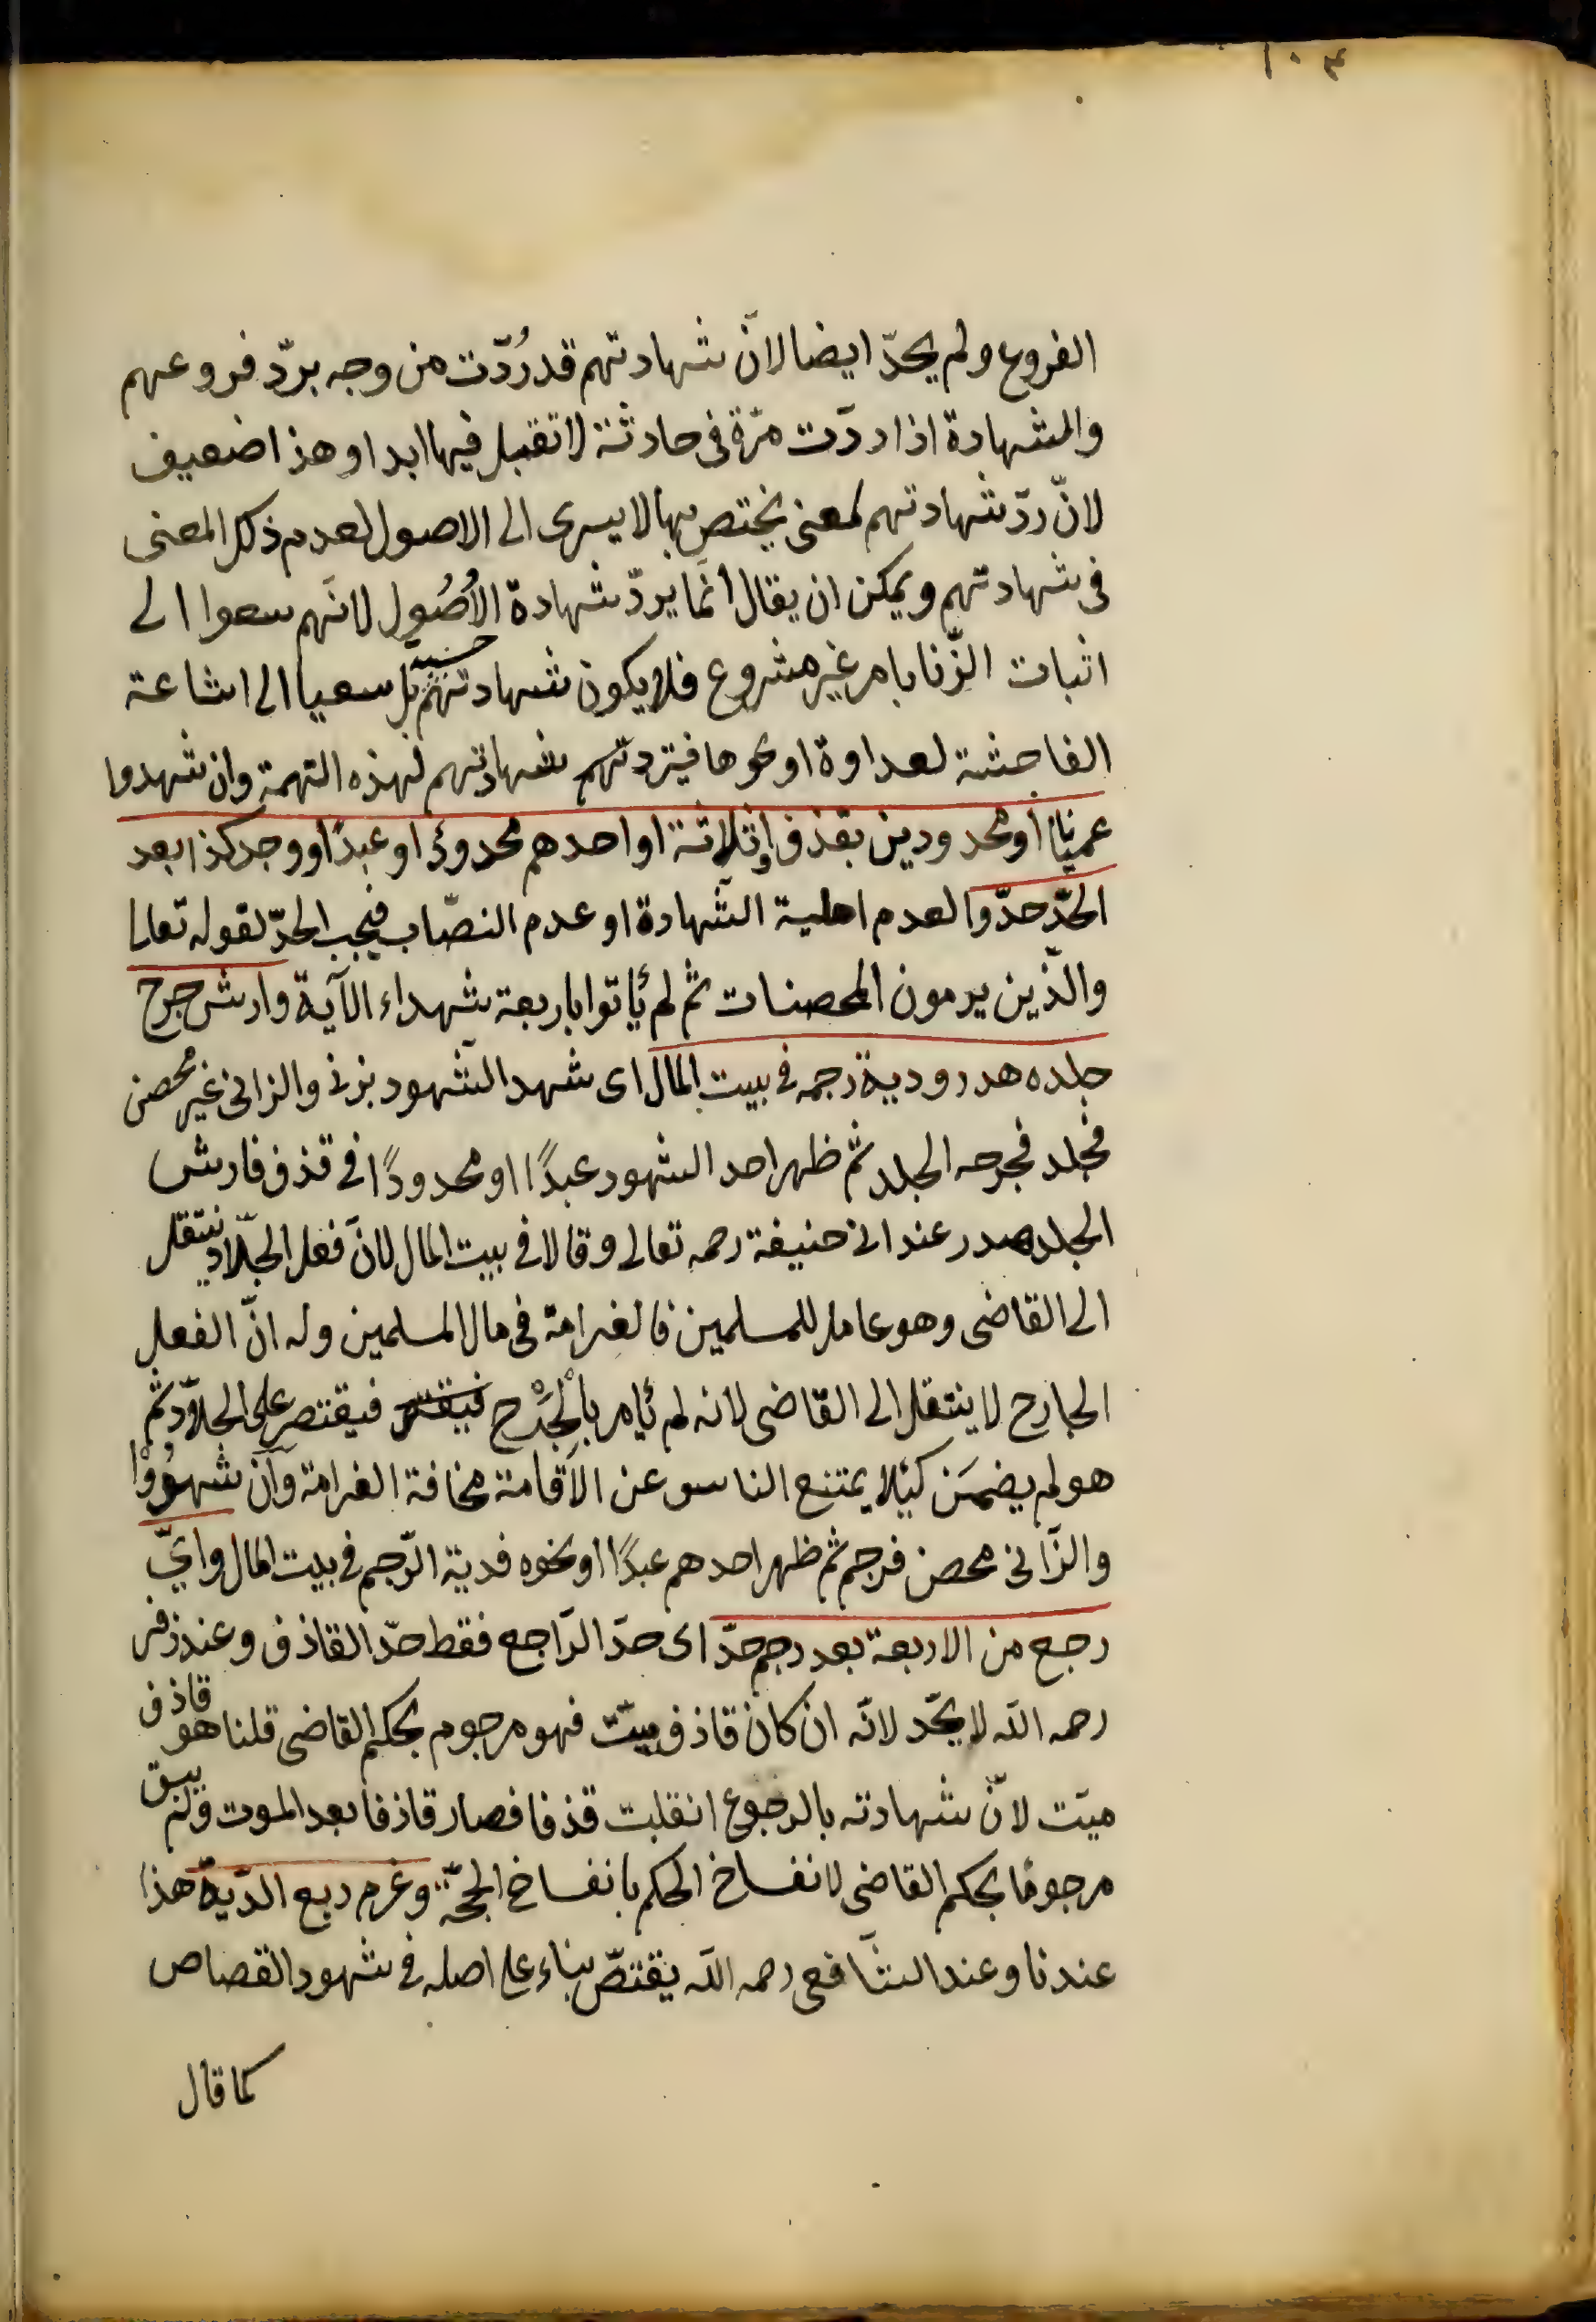 ١٠٤
الفروع ولم يحدّ ايضا لانّ شهادتهم قد رُدّت من وجه بردّ فروعهم
والشهادة اذا ردّت مرّة فى حادثة لا تقبل فيها ابدا وهذا ضعيف
لانّ ردّ شهادتهم لمعنى يختص بها لا يسرى الى الاصول لعدم ذلك المعنى
فى شهادتهم ويمكن ان يقال انّما يردّ شهادة الأُصُول لانّهم سعوا الى
اثبات الزّنا بامر غير مشروع فلا يكون شهادتهم حسبة بل سعيا الى اشاعة
الفاحشة لعداوة او نحوها فيترد تهم شهادتهم لهذه التهمة وان شهدوا
عميانا او محدودين بقذف او ثلاثة او احدهم محدود او عبدًا او وجد كذا بعد
الحدّ حدّوا لعدم اهلية الشّهادة او عدم النصّاب فيجب الحدّ لقوله تعالى
والّذين يرمون المحصنات ثم لم يأتوا باربعة شهداء الآية وارش جرح
جلده هدر ودية رجمه فى بيت المال اى شهد الشّهود بزنى والزانى غير محصن
فجلد فجرحه الجلد ثم ظهر احد الشهود عبدًا او محدودًا فى قذف فارش
الجلد هدر عند ابى حنيفة رحمه تعالى وقالا فى بيت المال لانّ فعل الجلّاد ينتقل
الى القاضى وهو عامل للمسلمين فالغرامة فى مال المسلمين وله انّ الفعل
الجارح لا ينتقل الى القاضى لانه لم يأمر بالْجَرْح فيقتصر فيقتصر على الجلاّد ثم
هو لم يضمَن كيلا يمتنع الناس عن الاقامة مخافة الغرامة وان شهدوا
والزّانى محصن فرجم ثم ظهر احدهم عبدًا او نحوه فدية الرّجم فى بيت المال وايّ
رجع من الاربعة بعد رجم حدّ اى حدّ الرّاجع فقط حدّ القاذف وعند زفر
رحمه الله لا يحدّ لانّه ان كان قاذف ميّت فهو مرجوم بحكم القاضى قلنا هو قاذف
ميّت لانّ شهادته بالرجوع انقلبت قذفا فصار قاذفا بعد الموت ولم يبق
مرجومًا بحكم القاضى لانفساخ الحكم بانفساخ الحجّة وغرم ربع الدّية هذا
عندنا وعند الشّافعى رحمه الله يقتصّ بناء على اصله فى شهود القصاص
كما قال